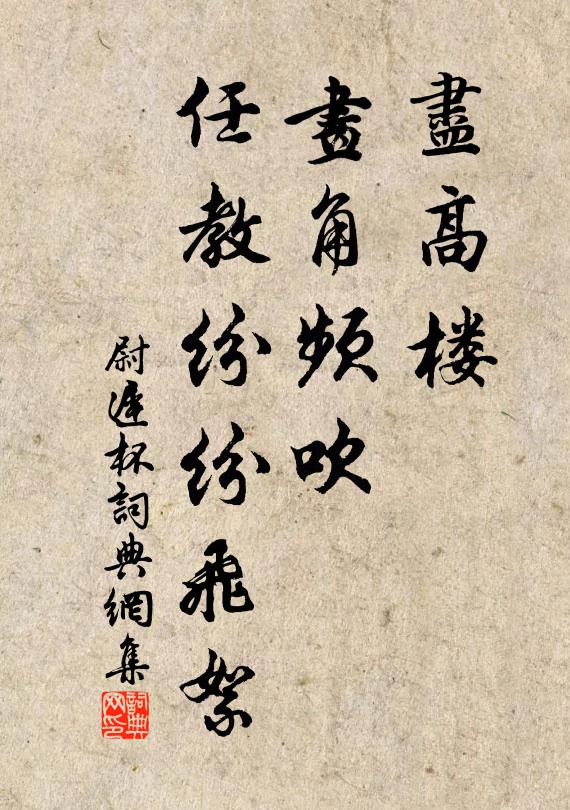 盡高楼
畫角頻吹
任教纷纷飛絮
尉遲杯詞典網集
詞典网印